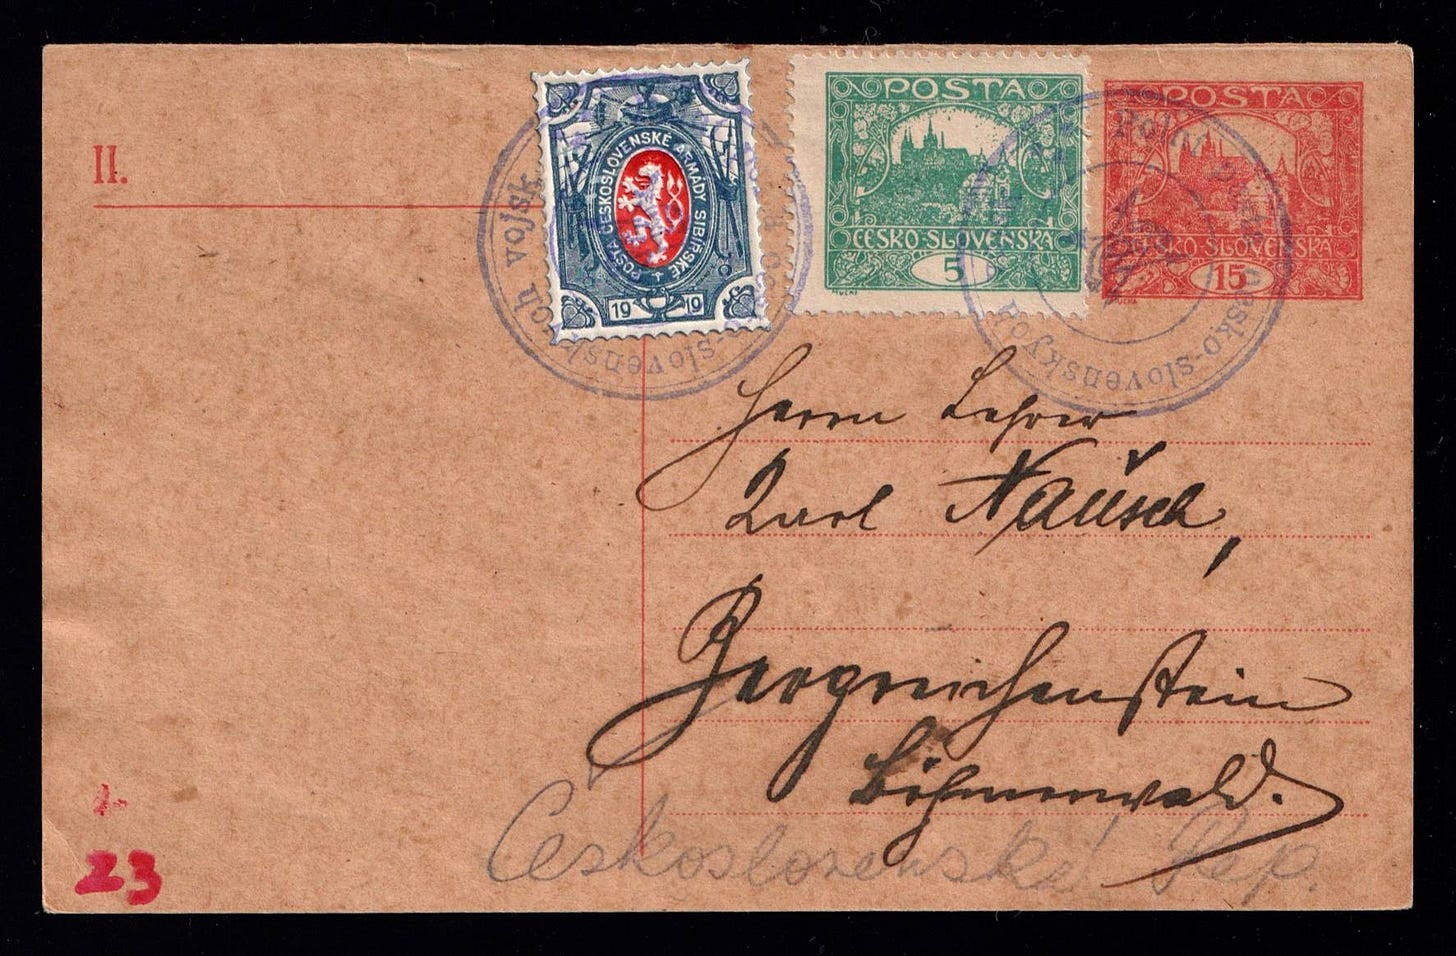 II.
POŠTA ČESKOSLOVENSKÉ ARMÁDY SIBIŘSKÉ
1919
POSTA
ČESKO-SLOVENSKÁ
5
MUCHA
POSTA
ČESKO-SLOVENSKÁ
15
MUCHA
vojsk
-slovensk
Polní pošta česko-slovenských
Herrn Lehrer
Karl Nausch,
Bergreichenstein
Böhmerwald.
Československá Rep.
23